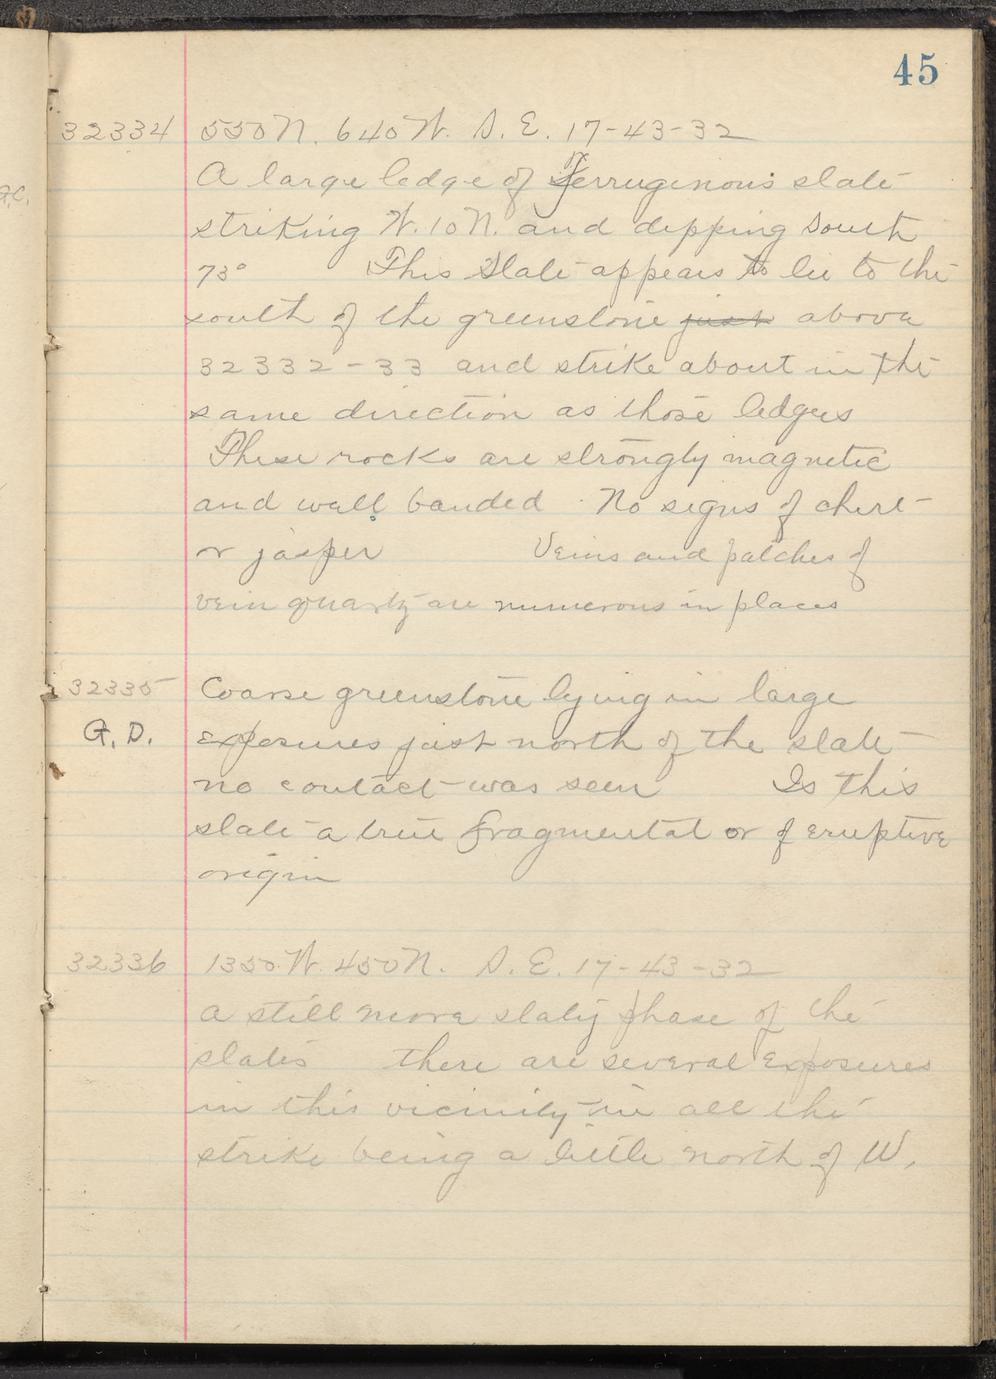 45
32334 550 N. 640 W. S. E. 17-43-32
A large ledge of Ferruginous slate
striking W. 10 N. and dipping South
73° This Slate appears to lie to the
south of the greenstone just above
32332-33 and strike about in the
same direction as those ledges
These rocks are strongly magnetic
and well banded. No signs of chert
or jasper Veins and patches of
vein quartz are numerous in places
32335 Coarse greenstone lying in large
G. D. exposures just north of the slate
no contact was seen Is this
slate a true fragmental or of eruptive
origin
32336 1350 W. 450 N. S. E. 17-43-32
A still more slaty phase of the
slates there are several exposures
in this vicinity in all the
strike being a little north of W.